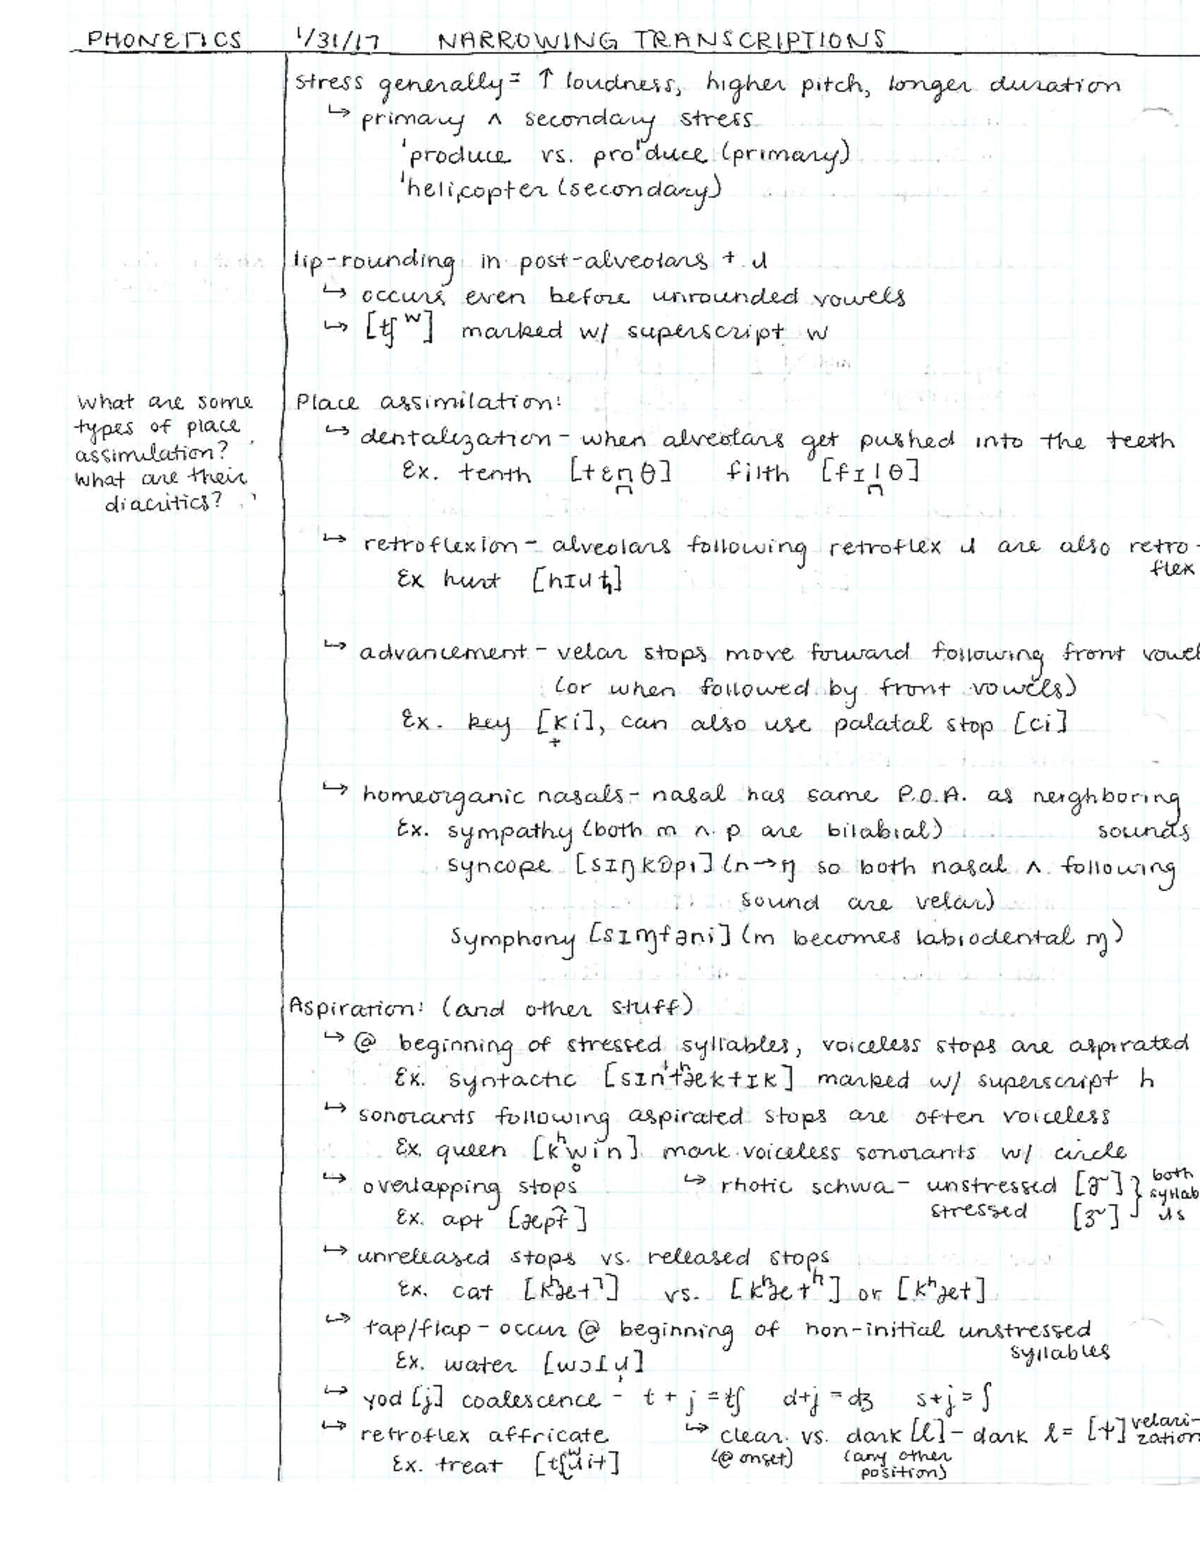 PHONETICS 1/31/17 NARROWING TRANSCRIPTIONS
stress generally = ↑ loudness, higher pitch, longer duration
↳ primary ∧ secondary stress
ˈproduce vs. proˈduce (primary)
ˈheliˌcopter (secondary)
lip-rounding in post-alveolars + ɹ
↳ occurs even before unrounded vowels
↳ [tʃʷ] marked w/ superscript w
What are some
types of place
assimulation?
What are their
diacritics?
Place assimilation:
↳ dentalization - when alveolars get pushed into the teeth
Ex. tenth [tɛn̪θ] filth [fɪl̪θ]
↳ retroflexion - alveolars following retroflex ɹ are also retro-
flex
Ex hurt [hɪɹʈ]
↳ advancement - velar stops move forward following front vowel
(or when followed by front vowels)
Ex. key [k̟i], can also use palatal stop [ci]
↳ homeorganic nasals - nasal has same P.O.A. as neighboring
sounds
Ex. sympathy (both m n. p are bilabial)
syncope [sɪŋkəpi] (n→ŋ so both nasal ∧ following
sound are velar)
Symphony [sɪɱfəni] (m becomes labiodental ɱ)
Aspiration: (and other stuff)
↳ @ beginning of stressed syllables, voiceless stops are aspirated
Ex. syntactic [sɪnˈtʰæktɪk] marked w/ superscript h
↳ sonorants following aspirated stops are often voiceless
Ex. queen [kʰw̥in] mark voiceless sonorants w/ circle
↳ overlapping stops ↳ rhotic schwa - unstressed [ɚ] } both
Ex. apt [æp͡t] stressed [ɝ] syllab
ɹs
↳ unreleased stops vs. released stops
Ex. cat [kʰæt̚] vs. [kʰætʰ] or [kʰæt]
↳ tap/flap - occur @ beginning of non-initial unstressed
syllables
Ex. water [wɔɾɹ̩]
↳ yod [j] coalescence - t + j = tʃ d+j = dʒ s+j = ʃ
↳ retroflex affricate ↳ clear vs. dark [l] - dark l = [ɫ] velari-
zation
(@ onset) (any other
position)
Ex. treat [tʃʷɹit]